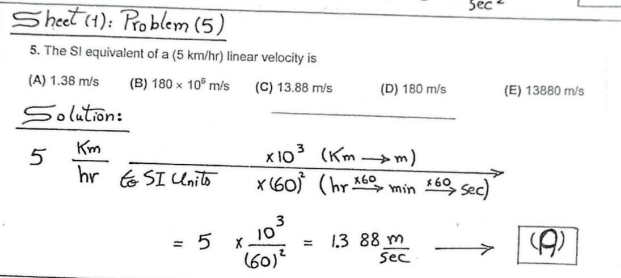 sec²
Sheet (1): Problem (5)
5. The SI equivalent of a (5 km/hr) linear velocity is
(A) 1.38 m/s (B) 180 × 10⁶ m/s (C) 13.88 m/s (D) 180 m/s (E) 13880 m/s
Solution:
5 Km/hr to SI Units ×10³ (Km → m) / ×(60)² (hr ×60→ min ×60→ sec)
= 5 × 10³/(60)² = 1.3 88 m/sec → (A)